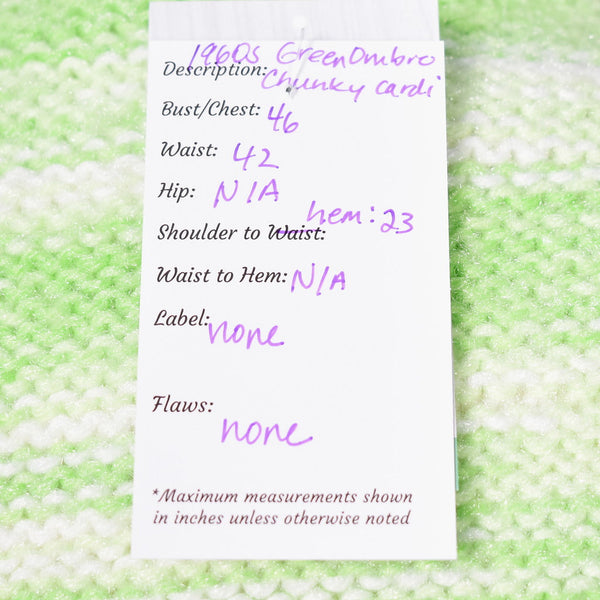 1960s Green Ombre
Description: Chunky cardi
Bust/Chest: 46
Waist: 42
Hip: N/A
hem: 23
Shoulder to Waist:
Waist to Hem: N/A
Label: none
Flaws:
none
*Maximum measurements shown
in inches unless otherwise noted